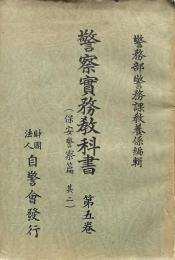 警務部警務課教養係編輯
警察實務教科書
(保安警察篇 其二)
第五卷
財團法人 自警會發行